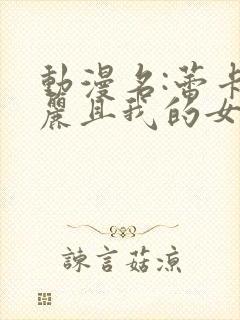 動漫名:蕾卡
麗且我的女
諫言菇凉